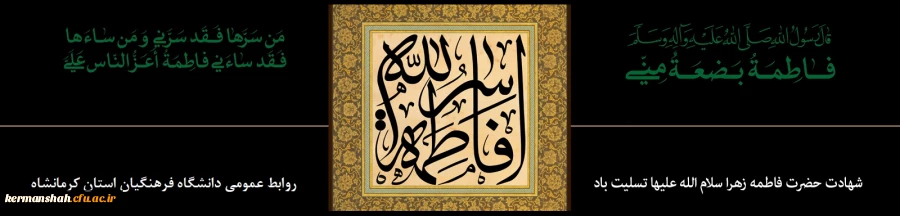 قَالَ رَسُولُ اللهِ صَلَّى اللهُ عَلَيْهِ وَآلِهِ وَسَلَّمَ
فَاطِمَةُ بَضعَةٌ مِنّي
مَن سَرَّها فَقَد سَرَّني وَ مَن سَاءَها
فَقَد ساءَني فاطِمَةُ أعَزُّ النّاسِ عَلَيَّ
فاطمة
سر الله
شهادت حضرت فاطمه زهرا سلام الله علیها تسلیت باد
روابط عمومی دانشگاه فرهنگیان استان کرمانشاه
kermanshah.cfu.ac.ir